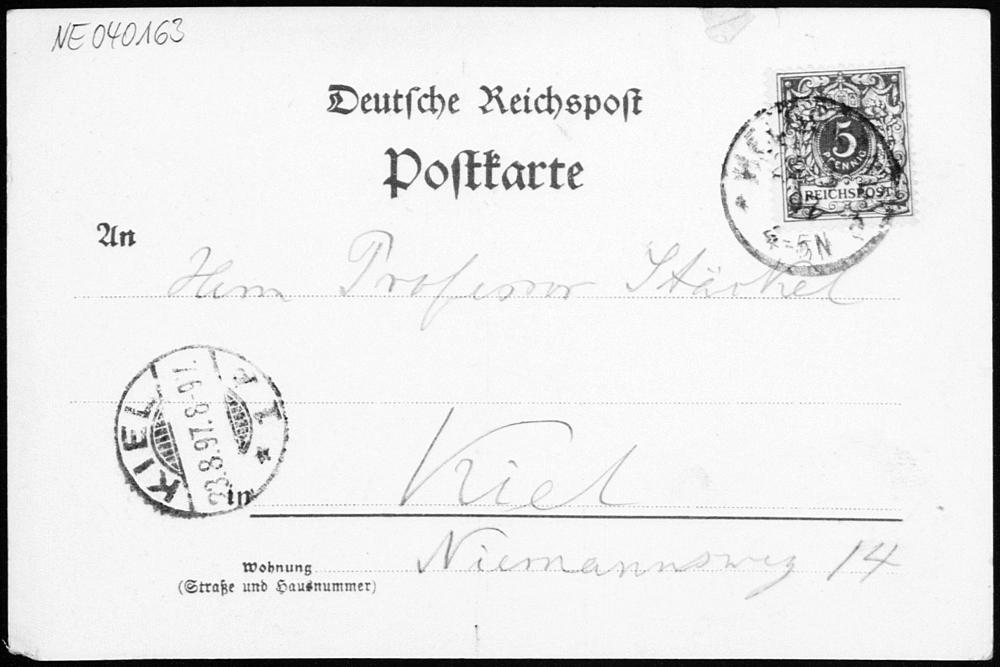 NE040163
Deutsche Reichspost
Postkarte
5
PFENNIG
REICHSPOST
4-5N
An
Herrn Professor Stäckel
KIEL
23.8.97. 8-9 V.
in Kiel
Wohnung
(Straße und Hausnummer)
Niemannsweg 14